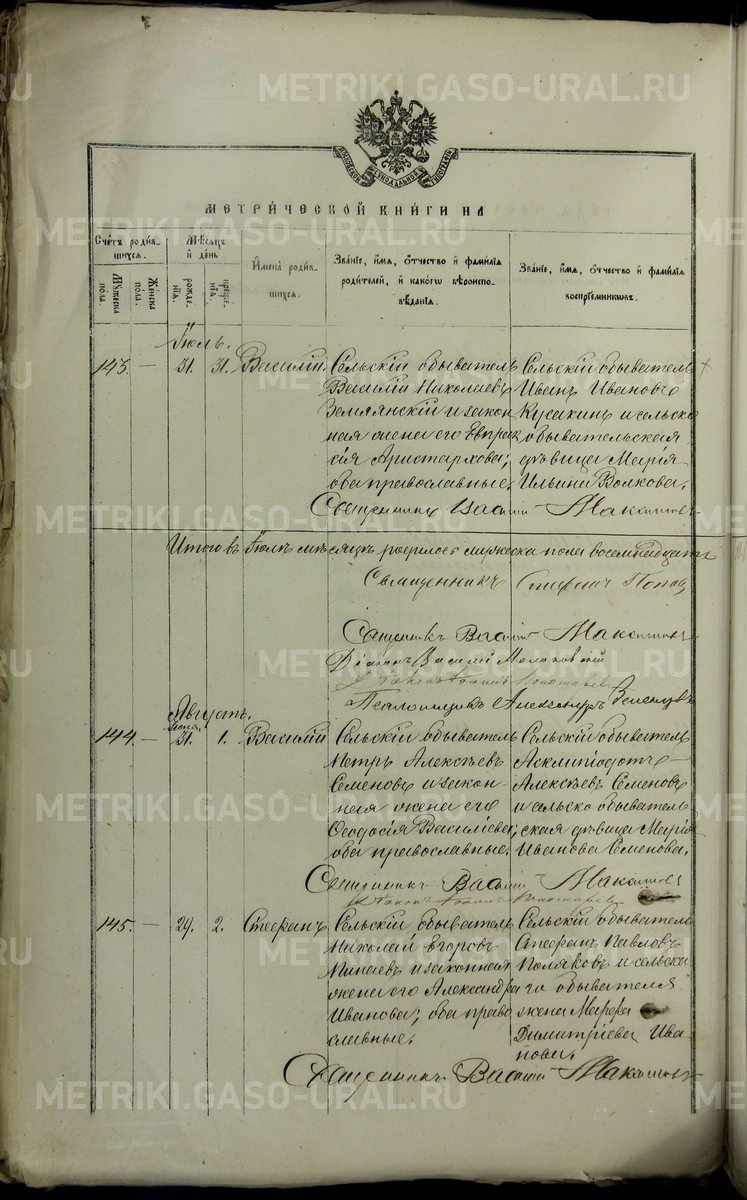 METRIKI.GASO-URAL.RU
МОСКОВСКОЙ СѴНОДАЛЬНОЙ ТИПОГРАФІИ
МЕТРИ́ЧЕСКОЙ КНИ́ГИ НА
Счетъ роди́вшихся.
Му́жеска по́ла.
Же́нска по́ла.
Мѣ́сяцъ и́ де́нь
рожде́нїя.
креще́нїя.
И҆мена̀ роди́вшихся.
Зва́нїе, и҆́мя, ѻ҆́тчество и҆ фами́лїя
роди́телей, и҆ како́гѡ вѣроиспо-
вѣ́данїя.
Зва́нїе, и҆́мя, ѻ҆́тчество и҆ фами́лїя
воспрїе́мникѡвъ.
Іюль.
143. — 31. 31. Василій.
Сельскій обыватель
Василій Николаевъ
Землянскій и закон-
ная жена его Евпрак-
сія Аристархова;
оба православные.
Сельскій обыватель
Иванъ Ивановъ
Кусакинъ и сельско
обывательская
дѣвица Марія
Ильина Волкова.
Священникъ Василій Макаровъ
Итого въ Іюлѣ мѣсяцѣ родилось мужеска пола восемнадцать
Священникъ Поповъ
Священникъ Василій Макаровъ
Діаконъ Василій
Псаломщикъ Александръ
Августъ.
144. — Іюля. 31. 1. Василій
Сельскій обыватель
Петръ Алексѣевъ
Семеновъ и закон-
ная жена его
Ѳеодосія Василіева;
оба православные.
Сельскій обыватель
Асклипіодотъ
Алексѣевъ Семеновъ
и сельско обыватель
ская дѣвица Марія
Иванова Семенова.
Священникъ Василій Макаровъ
145. — 29. 2. Стефанъ
Сельскій обыватель
Николай Егоровъ
Минаевъ и законная
жена его Александра
Иванова; оба право
славные.
Сельскій обыватель
Стефанъ Павловъ
Поляковъ и сельска
го обывателя
жена Марфа
Димитріева Ива
нова.
Священникъ Василій Макаровъ